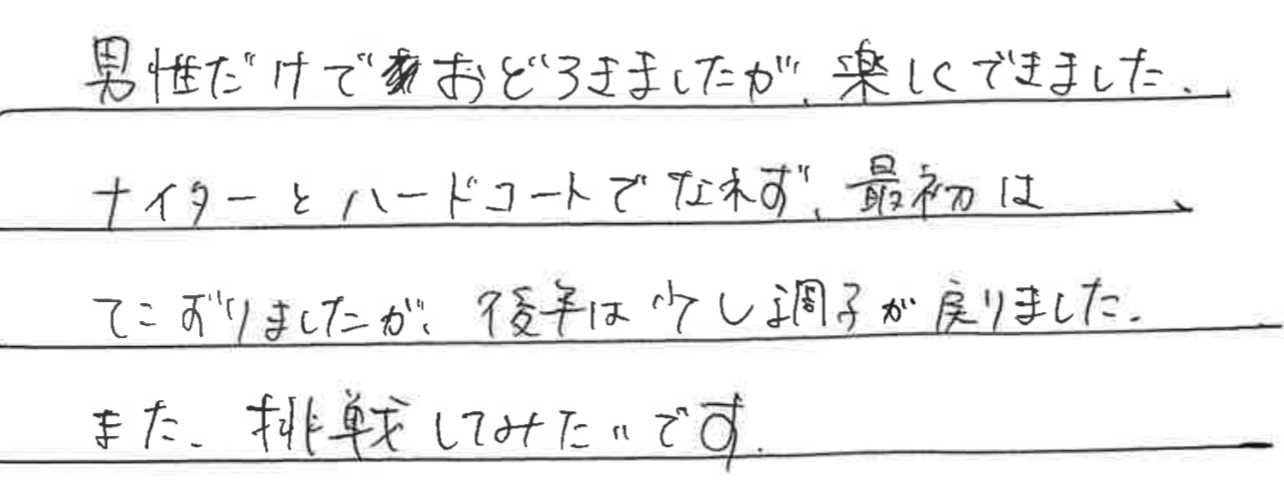 男性だけでおどろきましたが、楽しくできました。
ナイターとハードコートでなれず、最初は
てこずりましたが、後半は少し調子が戻りました。
また、挑戦してみたいです。